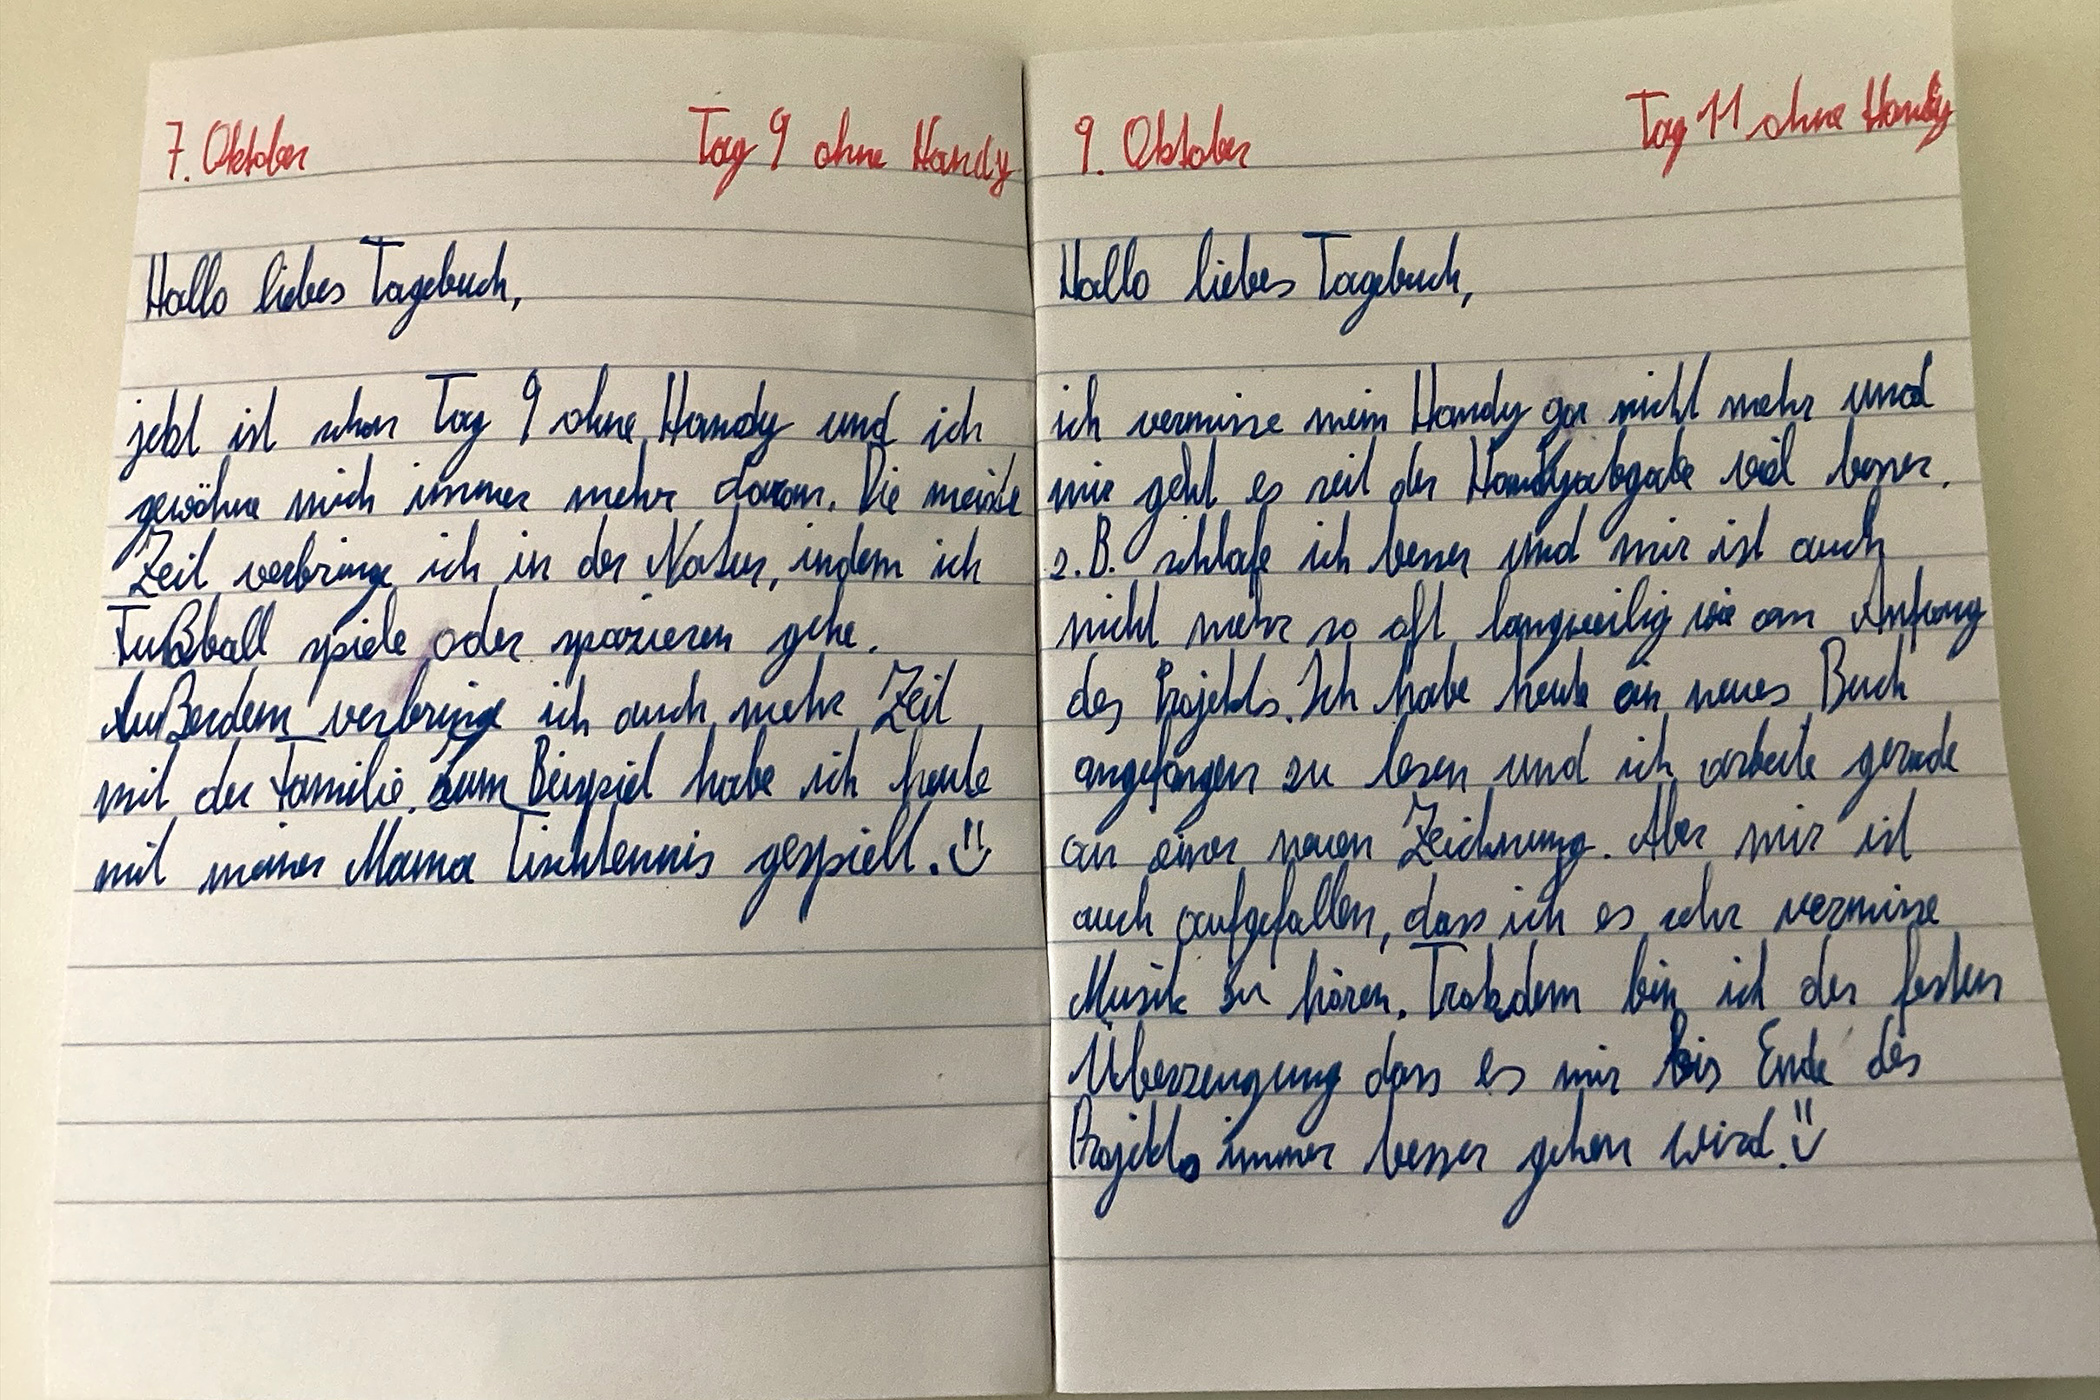 7. Oktober Tag 9 ohne Handy
Hallo liebes Tagebuch,
jetzt ist schon Tag 9 ohne Handy und ich
gewöhne mich immer mehr daran. Die meiste
Zeit verbringe ich in der Natur, indem ich
Fußball spiele oder spazieren gehe.
Außerdem verbringe ich auch mehr Zeit
mit der Familie. Zum Beispiel habe ich heute
mit meiner Mama Tischtennis gespielt.
9. Oktober Tag 11 ohne Handy
Hallo liebes Tagebuch,
ich vermisse mein Handy gar nicht mehr und
mir geht es seit der Handyabgabe viel besser.
z.B. schlafe ich besser und mir ist auch
nicht mehr so oft langweilig wie am Anfang
des Projekts. Ich habe heute ein neues Buch
angefangen zu lesen und ich arbeite gerade
an einer neuen Zeichnung. Aber mir ist
auch aufgefallen, dass ich es sehr vermisse
Musik zu hören. Trotzdem bin ich der festen
Überzeugung dass es mir bis Ende des
Projekts immer besser gehen wird.